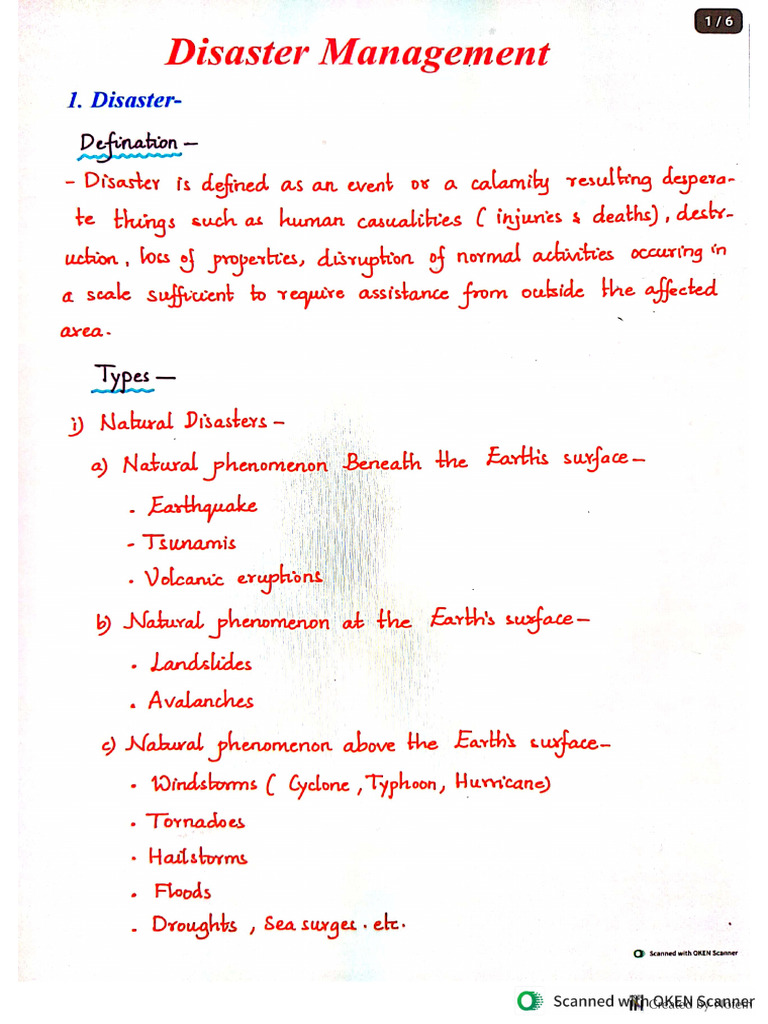 1 / 6
Disaster Management
1. Disaster-
Defination -
- Disaster is defined as an event or a calamity resulting despera-
te things such as human casualities ( injuries & deaths), destr-
uction, loss of properties, disruption of normal activities occuring in
a scale sufficient to require assistance from outside the affected
area.
Types -
i) Natural Disasters -
a) Natural phenomenon Beneath the Earth's surface -
. Earthquake
- Tsunamis
. Volcanic eruptions
b) Natural phenomenon at the Earth's surface -
. Landslides
. Avalanches
c) Natural phenomenon above the Earth's surface -
. Windstorms ( Cyclone , Typhoon, Hurricane)
. Tornadoes
. Hailstorms
. Floods
. Droughts , Sea surges . etc.
Scanned with OKEN Scanner
Scanned with OKEN Scanner
Created by Notein